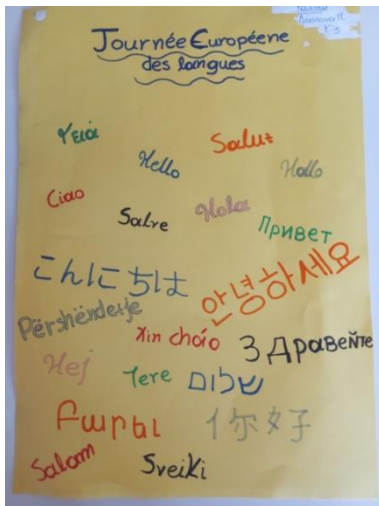 Journée Européene
des langues
Γειά
Hello
Salut
Hallo
Ciao
Salve
Hola
Привет
こんにちは
안녕하세요
Përshëndetje
Xin cháo
Здравейте
Hej
Tere
שלום
你好
Salam
Sveiki